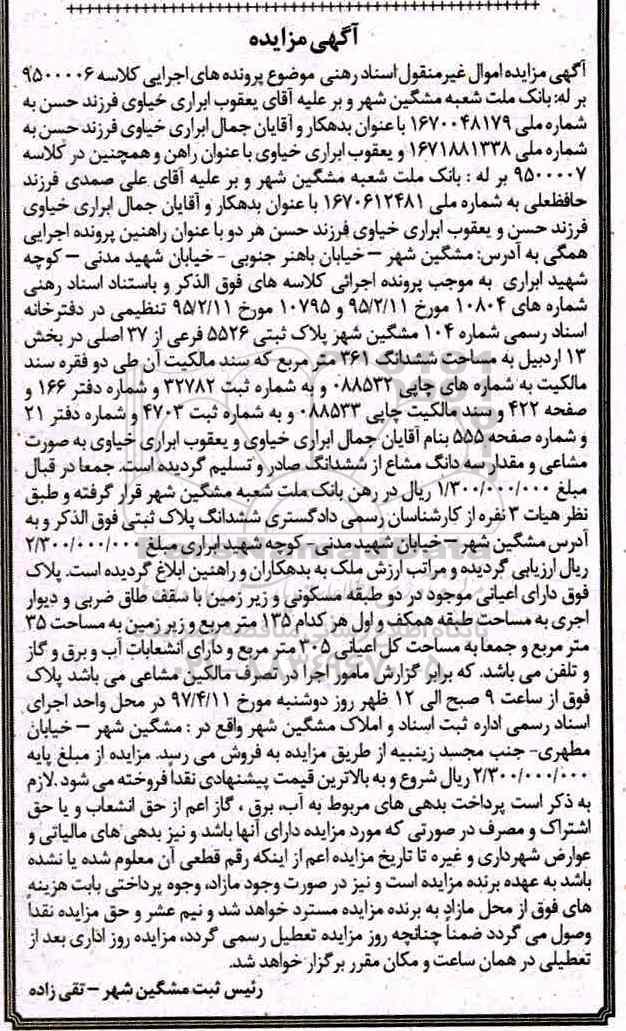 آگهی مزایده
آگهی مزایده اموال غیرمنقول اسناد رهنی موضوع پرونده های اجرایی کلاسه ۹۵۰۰۰۰۶
بر له: بانک ملت شعبه مشگین شهر و بر علیه آقای یعقوب ابراری خیاوی فرزند حسن به
شماره ملی ۱۶۷۰۰۴۸۱۷۹ با عنوان بدهکار و آقایان جمال ابراری خیاوی فرزند حسن به
شماره ملی ۱۶۷۱۸۸۱۳۳۸ و یعقوب ابراری خیاوی با عنوان راهن و همچنین در کلاسه
۹۵۰۰۰۰۷ بر له : بانک ملت شعبه مشگین شهر و بر علیه آقای علی صمدی فرزند
حافظعلی به شماره ملی ۱۶۷۰۶۱۲۴۸۱ با عنوان بدهکار و آقایان جمال ابراری خیاوی
فرزند حسن و یعقوب ابراری خیاوی فرزند حسن هر دو با عنوان راهنین پرونده اجرایی
همگی به آدرس: مشگین شهر – خیابان باهنر جنوبی - خیابان شهید مدنی – کوچه
شهید ابراری به موجب پرونده اجرائی کلاسه های فوق الذکر و باستناد اسناد رهنی
شماره های ۱۰۸۰۴ مورخ ۹۵/۲/۱۱ و ۱۰۷۹۵ مورخ ۹۵/۲/۱۱ تنظیمی در دفترخانه
اسناد رسمی شماره ۱۰۴ مشگین شهر پلاک ثبتی ۵۵۲۶ فرعی از ۳۷ اصلی در بخش
۱۳ اردبیل به مساحت ششدانگ ۳۶۱ متر مربع که سند مالکیت آن طی دو فقره سند
مالکیت به شماره های چاپی ۰۸۸۵۳۲ و به شماره ثبت ۳۲۷۸۲ و شماره دفتر ۱۶۶ و
صفحه ۴۲۲ و سند مالکیت چاپی ۰۸۸۵۳۳ و به شماره ثبت ۴۷۰۳ و شماره دفتر ۲۱
و شماره صفحه ۵۵۵ بنام آقایان جمال ابراری خیاوی و یعقوب ابراری خیاوی به صورت
مشاعی و مقدار سه دانگ مشاع از ششدانگ صادر و تسلیم گردیده است. جمعا در قبال
مبلغ ۱/۳۰۰/۰۰۰/۰۰۰ ریال در رهن بانک ملت شعبه مشگین شهر قرار گرفته و طبق
نظر هیات ۳ نفره از کارشناسان رسمی دادگستری ششدانگ پلاک ثبتی فوق الذکر و به
آدرس مشگین شهر – خیابان شهید مدنی - کوچه شهید ابراری مبلغ ۲/۳۰۰/۰۰۰/۰۰۰
ریال ارزیابی گردیده و مراتب ارزش ملک به بدهکاران و راهنین ابلاغ گردیده است. پلاک
فوق دارای اعیانی موجود در دو طبقه مسکونی و زیر زمین با سقف طاق ضربی و دیوار
اجری به مساحت طبقه همکف و اول هر کدام ۱۳۵ متر مربع و زیر زمین به مساحت ۳۵
متر مربع و جمعا به مساحت کل اعیانی ۳۰۵ متر مربع و دارای انشعابات آب و برق و گاز
و تلفن می باشد. که برابر گزارش مامور اجرا در تصرف مالکین مشاعی می باشد پلاک
فوق از ساعت ۹ صبح الی ۱۲ ظهر روز دوشنبه مورخ ۹۷/۴/۱۱ در محل واحد اجرای
اسناد رسمی اداره ثبت اسناد و املاک مشگین شهر واقع در : مشگین شهر – خیابان
مطهری- جنب مجسد زینبیه از طریق مزایده به فروش می رسد. مزایده از مبلغ پایه
۲/۳۰۰/۰۰۰/۰۰۰ ریال شروع و به بالاترین قیمت پیشنهادی نقدا فروخته می شود .لازم
به ذکر است پرداخت بدهی های مربوط به آب، برق ، گاز اعم از حق انشعاب و یا حق
اشتراک و مصرف در صورتی که مورد مزایده دارای آنها باشد و نیز بدهی های مالیاتی و
عوارض شهرداری و غیره تا تاریخ مزایده اعم از اینکه رقم قطعی آن معلوم شده یا نشده
باشد به عهده برنده مزایده است و نیز در صورت وجود مازاد، وجوه پرداختی بابت هزینه
های فوق از محل مازاد به برنده مزایده مسترد خواهد شد و نیم عشر و حق مزایده نقداً
وصول می گردد ضمناً چنانچه روز مزایده تعطیل رسمی گردد، مزایده روز اداری بعد از
تعطیلی در همان ساعت و مکان مقرر برگزار خواهد شد.
رئیس ثبت مشگین شهر – تقی زاده